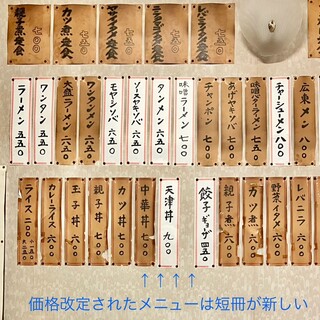 親子煮定食 七〇〇
カツ煮定食 七五〇
ワンタンメン 六五〇
大盛ラーメン 六五〇
ワンタン 五五〇
ラーメン 五五〇
モヤシソバ 六五〇
ソースヤキソバ 六五〇
タンメン 六五〇
味噌ラーメン 七〇〇
チャンポン 七五〇
あげヤキソバ 七五〇
味噌バターラーメン 七五〇
チャーシューメン 八〇〇
広東メン 八〇〇
ライス 二〇〇
カレーライス 六〇〇
玉子丼 六〇〇
親子丼 七〇〇
カツ丼 七〇〇
中華丼 七〇〇
天津丼 九〇〇
餃子 ギョーザ 四五〇
親子煮 六〇〇
カツ煮 六〇〇
野菜イタメ 六〇〇
レバニラ 六〇〇
↑ ↑ ↑ ↑
価格改定されたメニューは短冊が新しい